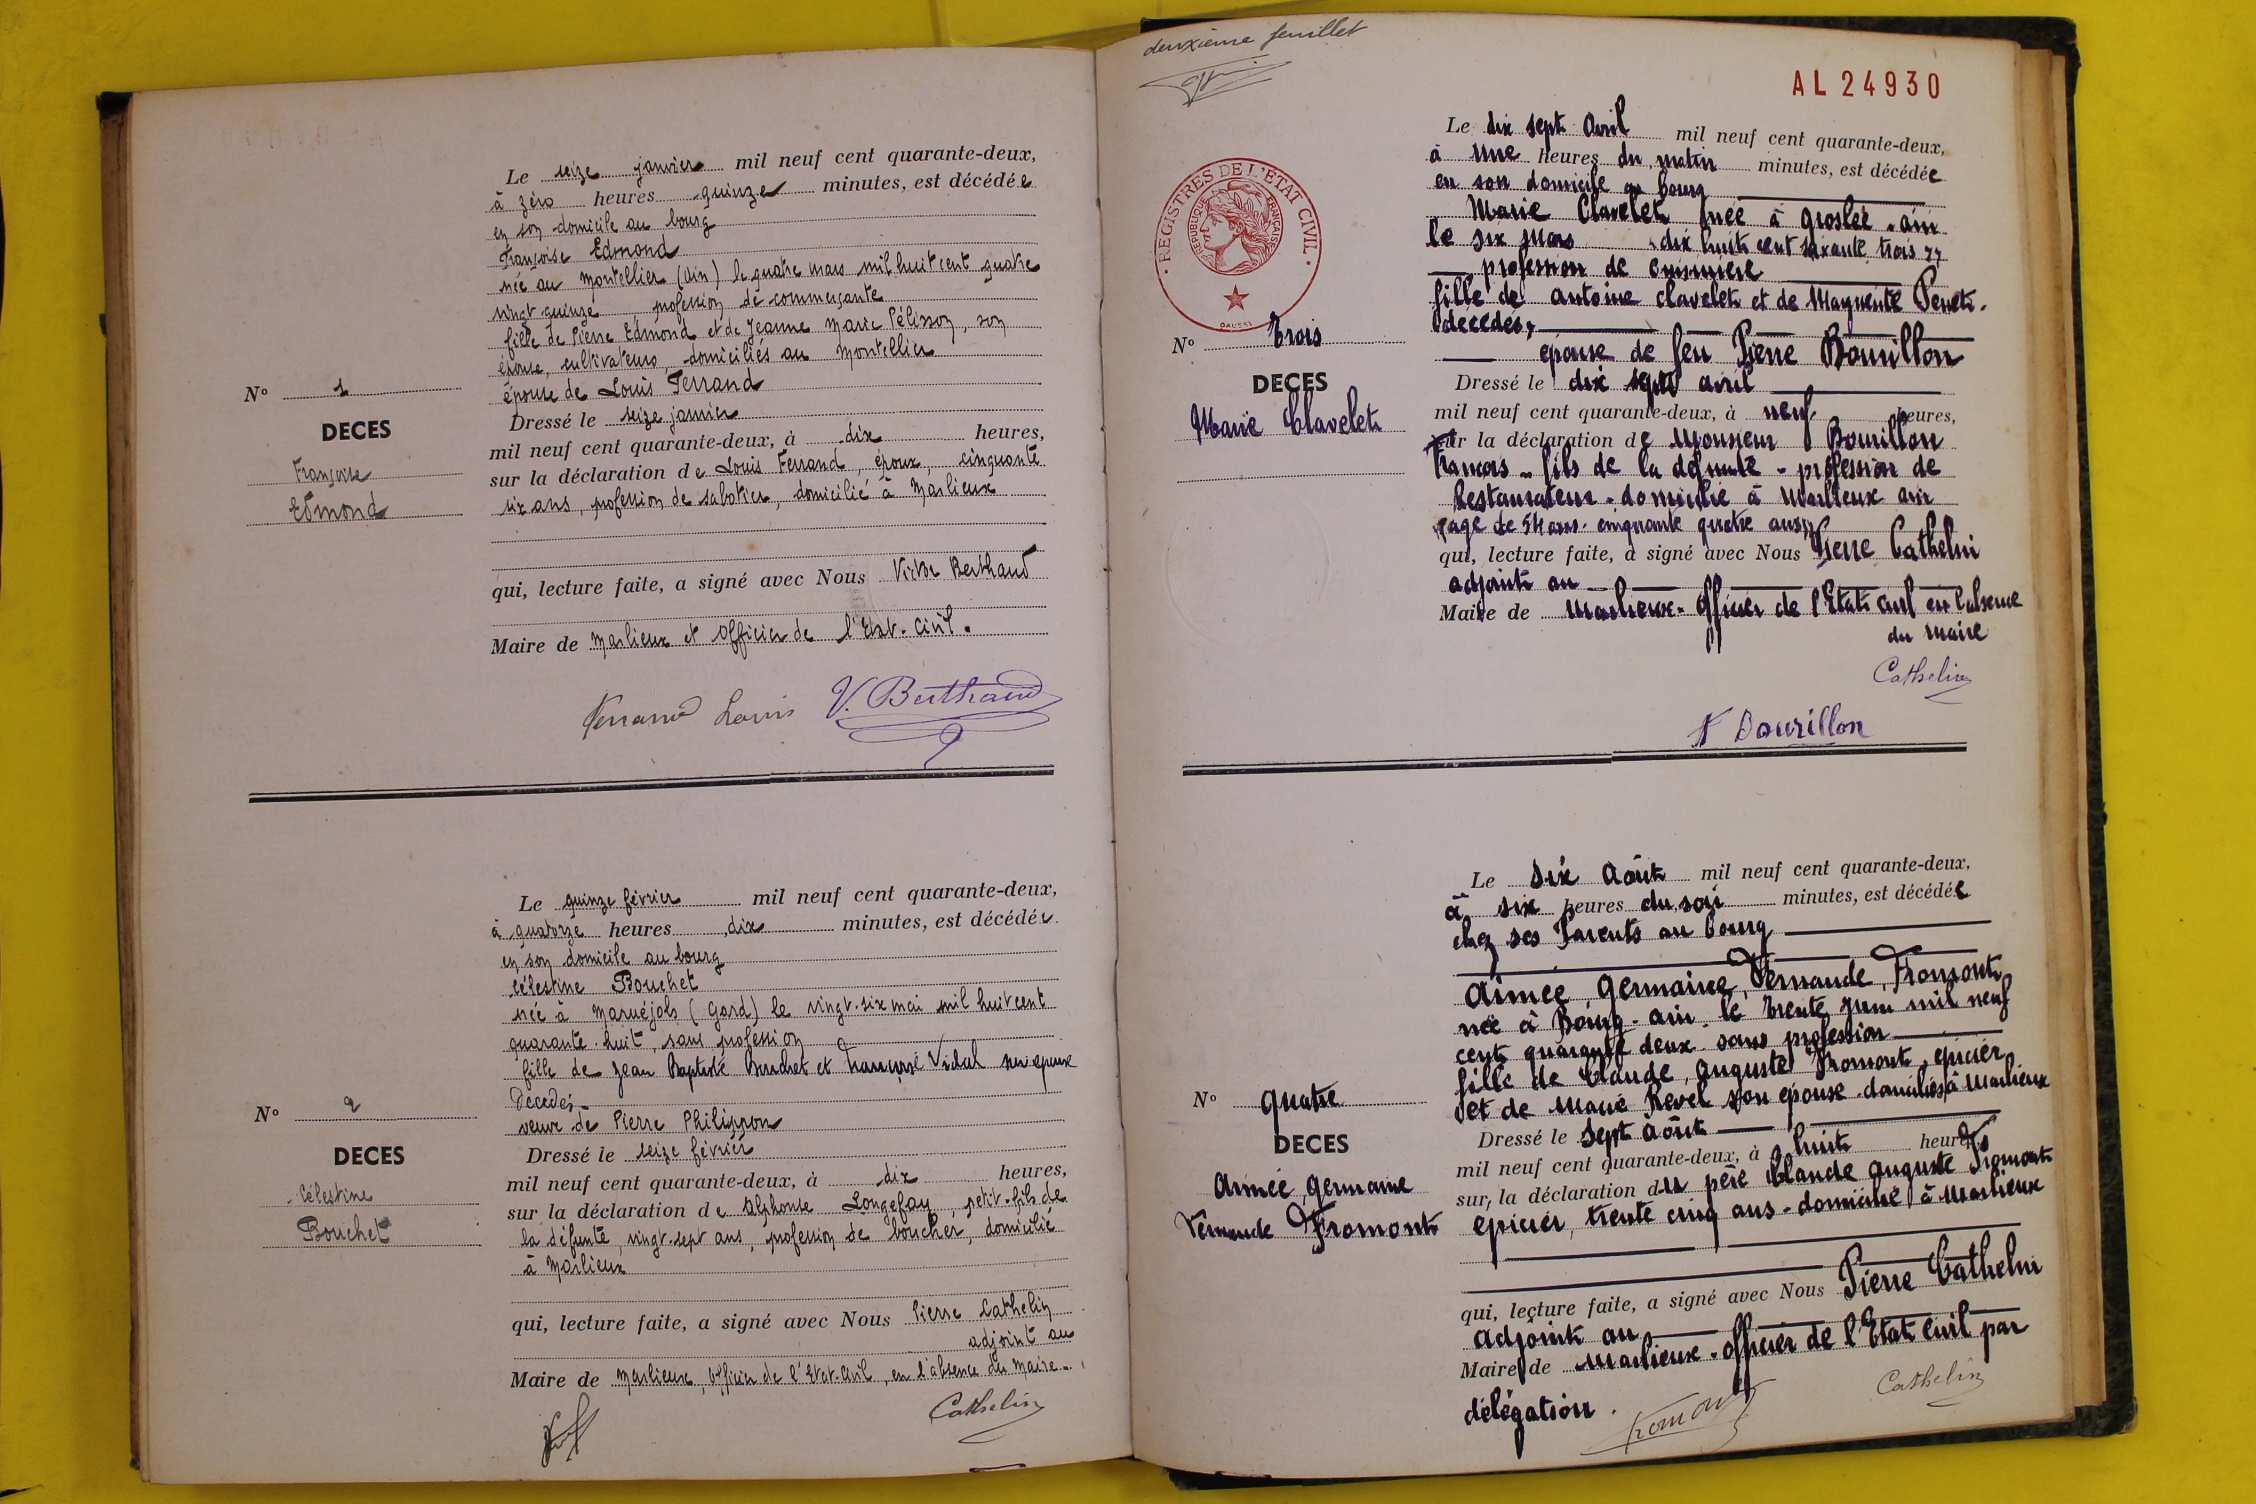 Le seize janvier mil neuf cent quarante-deux,
à zéro heures quinze minutes, est décédée
en son domicile au bourg
Françoise Edmond
née au Montellier (Ain) le quatre mars mil huit cent quatre
vingt quinze profession de commerçante
fille de Pierre Edmond et de Jeanne Marie Pélisson, son
épouse, cultivateurs, domiciliés au Montellier
épouse de Louis Ferrand
Dressé le seize janvier
mil neuf cent quarante-deux, à dix heures,
sur la déclaration de Louis Ferrand, époux, cinquante
six ans, profession de sabotier, domicilié à Marlieux
qui, lecture faite, a signé avec Nous Victor Berthaud
Maire de Marlieux et Officier de l'Etat-Civil.
Ferrand Louis V. Berthaud
N° 1
DECES
Françoise
Edmond
Le quinze février mil neuf cent quarante-deux,
à quatorze heures dix minutes, est décédée
en son domicile au bourg
Célestine Bouchet
née à Maruéjols (Gard) le vingt-six mai mil huit cent
quarante-huit, sans profession
fille de Jean Baptiste Bouchet et Françoise Vidal son épouse
décédés
veuve de Pierre Philippon
Dressé le seize février
mil neuf cent quarante-deux, à dix heures,
sur la déclaration de Alphonse Longefay, petit-fils de
la défunte, vingt-sept ans, profession de boucher, domicilié
à Marlieux
qui, lecture faite, a signé avec Nous Pierre Cathelin
adjoint au
Maire de Marlieux, Officier de l'Etat-Civil, en l'absence du Maire
Cathelin
N° 2
DECES
Célestine
Bouchet
deuxième feuillet
AL 24930
REGISTRES DE L'ÉTAT CIVIL
RÉPUBLIQUE FRANÇAISE
Le dix sept Avril mil neuf cent quarante-deux,
à une heures du matin minutes, est décédée
en son domicile au bourg
Marie Clavelet née à Groslée - ain
le six Mars dix huit cent soixante trois
profession de cuisinière
fille de Antoine Clavelet et de Marguerite Penet.
décédés,
épouse de feu Pierre Bourillon
Dressé le dix sept avril
mil neuf cent quarante-deux, à neuf heures,
sur la déclaration de Monsieur Bourillon
François - fils de la défunte - profession de
Restaurateur - domicilié à Marlieux ain
agé de 54 ans. cinquante quatre ans
qui, lecture faite, a signé avec Nous Pierre Cathelin
adjoint au
Maire de Marlieux - Officier de l'Etat civil en l'absence
du Maire
Cathelin
F Bourillon
N° Trois
DECES
Marie Clavelet
Le Six Août mil neuf cent quarante-deux,
à six heures du soir minutes, est décédée
chez ses Parents au bourg
Aimée, Germaine, Fernande, Fromont
née à Bourg - ain le trente juin mil neuf
cent quarante deux sans profession
fille de Claude, Auguste Fromont, epicier
et de Marie Revel son épouse - domiciliés à Marlieux
Dressé le Sept août
mil neuf cent quarante-deux, à huit heures
sur, la déclaration du père Claude Auguste Fromont
epicier, trente cinq ans - domicilié à Marlieux
qui, lecture faite, a signé avec Nous Pierre Cathelin
Adjoint au
Maire de Marlieux - Officier de l'Etat Civil par
délégation.
Fromont
Cathelin
N° Quatre
DECES
Aimée Germaine
Fernande Fromont